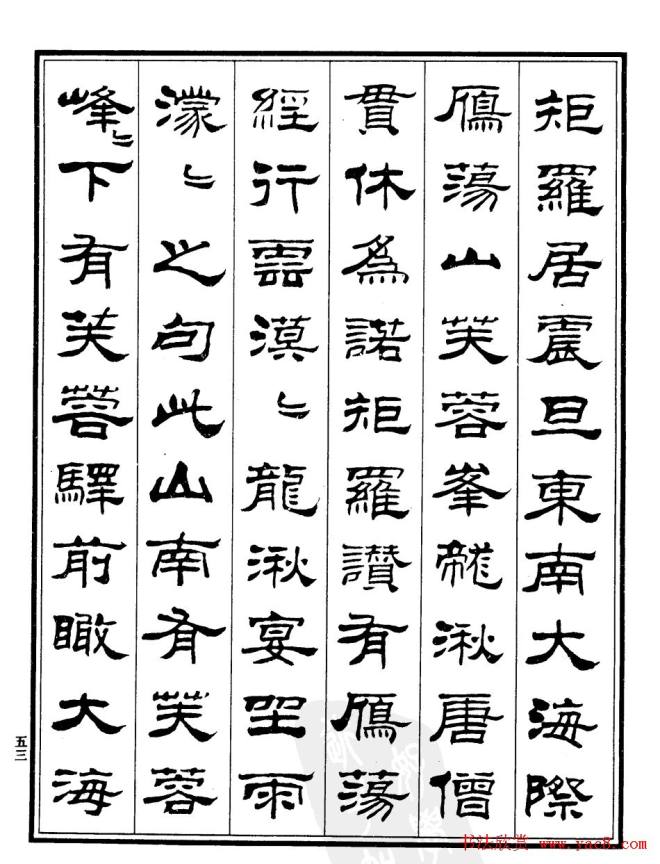 矩羅居震旦東南大海際
鴈蕩山芙蓉峯龍湫唐僧
貫休爲諾矩羅讃有鴈蕩
經行雲漠〻龍湫宴坐雨
濛〻之句此山南有芙蓉
峰〻下有芙蓉驛前瞰大海
五三
书法欣赏 www.yac8.com